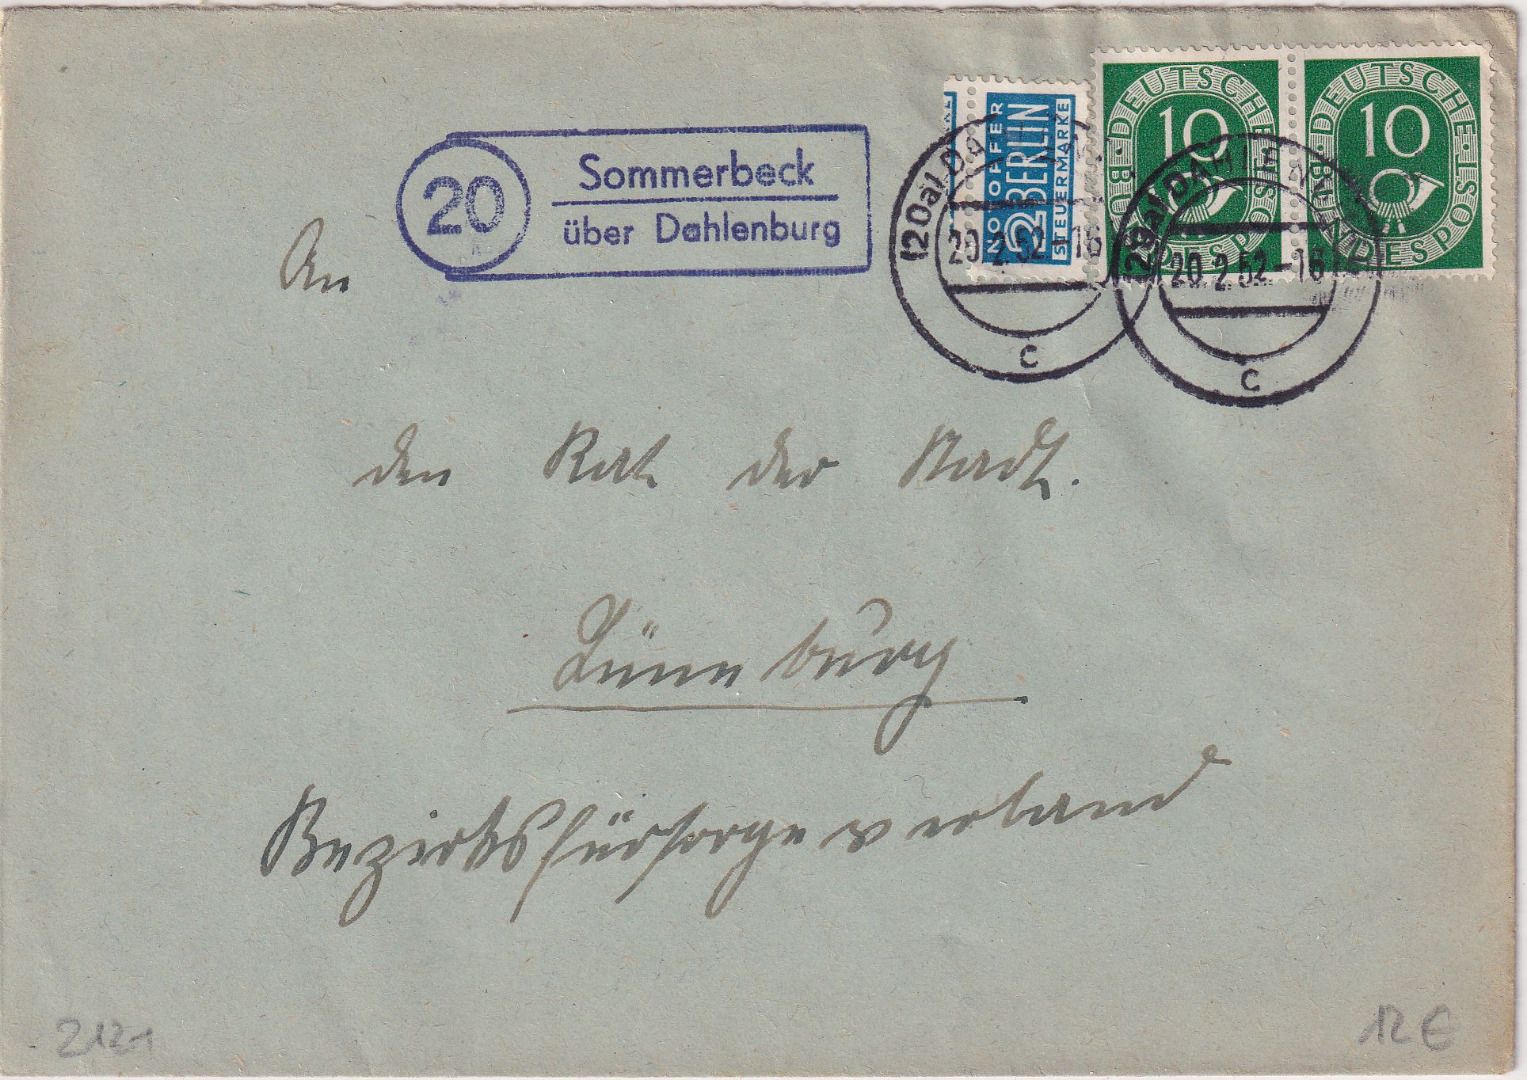 20
Sommerbeck
über Dahlenburg
NOTOPFER
2 BERLIN
STEUERMARKE
10
DEUTSCHE BUNDESPOST
10
DEUTSCHE BUNDESPOST
(20a) DA
20.2.52-16
c
(20a) DAHLENBURG
20.2.52-16
c
An
den Rat der Stadt.
Lüneburg
Bezirksfürsorgeverband
2121
12 €